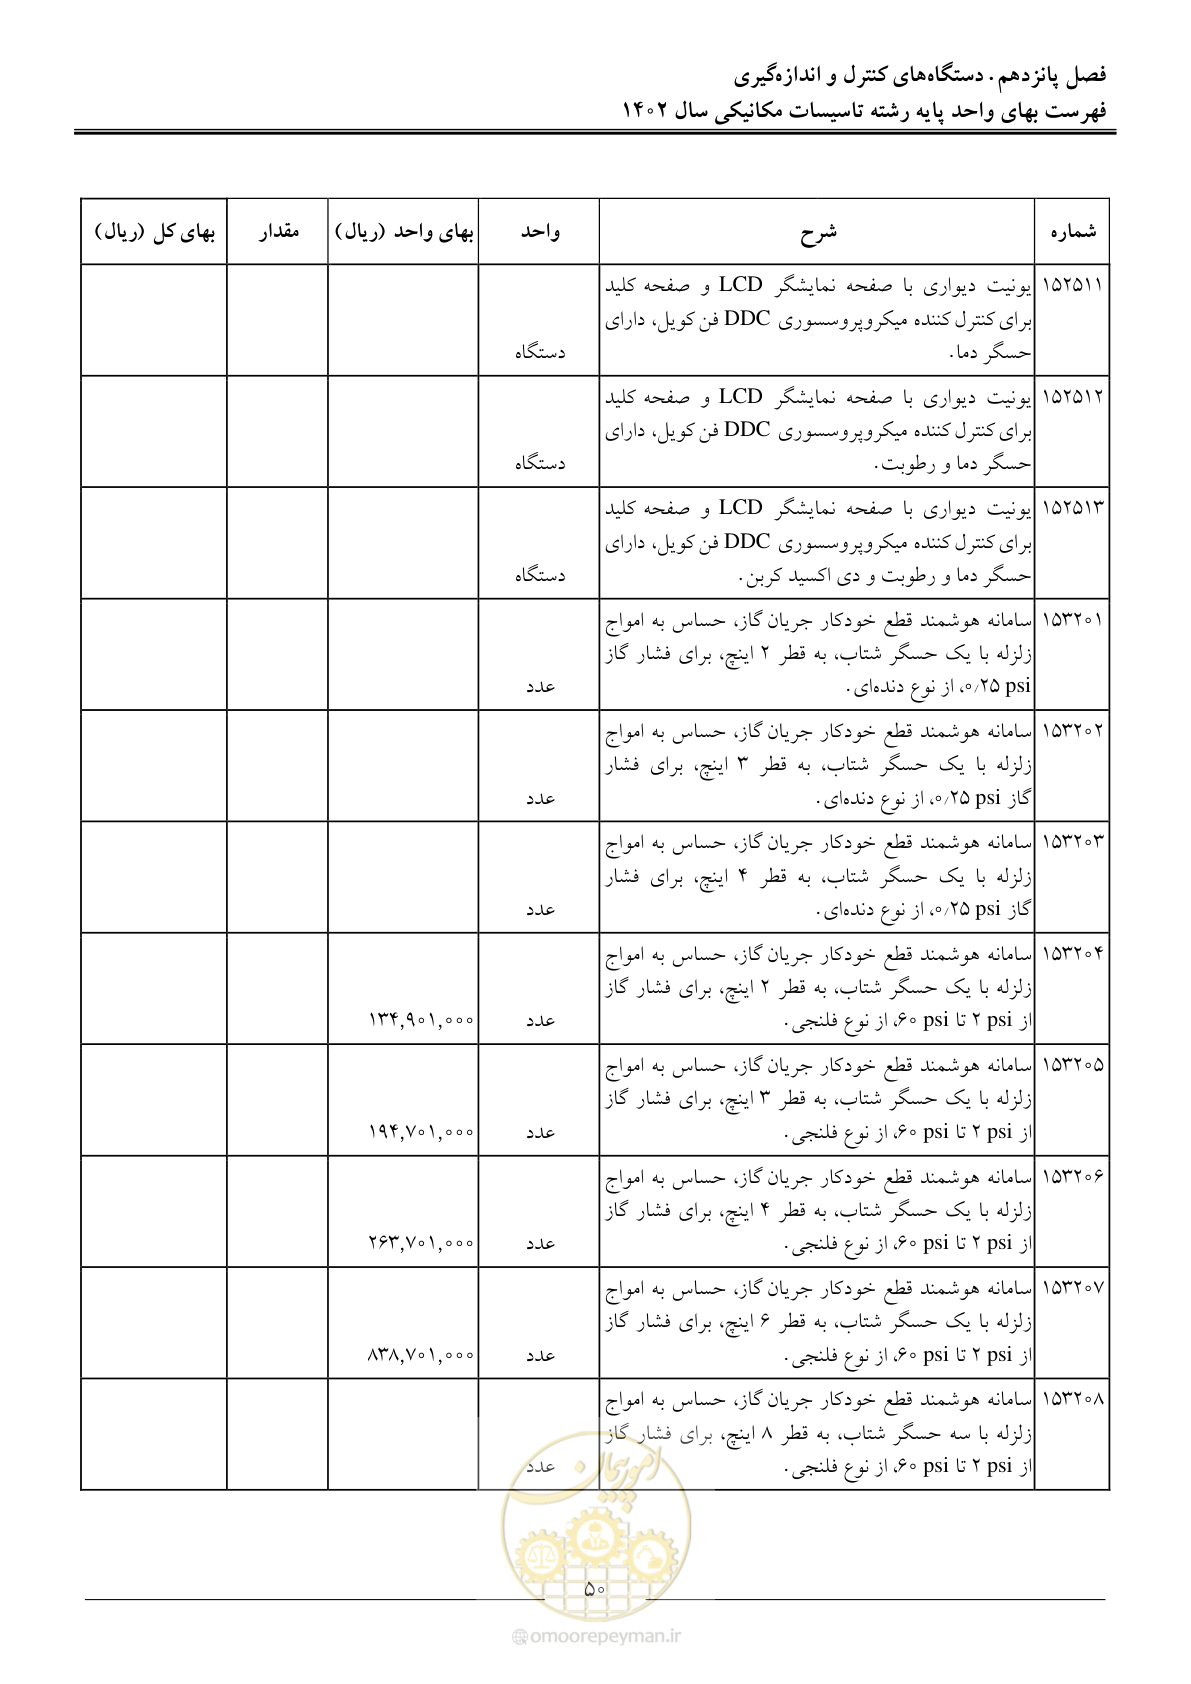 فصل پانزدهم. دستگاه‌های کنترل و اندازه‌گیری
فهرست بهای واحد پایه رشته تاسیسات مکانیکی سال ۱۴۰۲
شماره شرح واحد بهای واحد (ریال) مقدار بهای کل (ریال)
۱۵۲۵۱۱ یونیت دیواری با صفحه نمایشگر LCD و صفحه کلید
برای کنترل کننده میکروپروسسوری DDC فن کویل، دارای
حسگر دما. دستگاه
۱۵۲۵۱۲ یونیت دیواری با صفحه نمایشگر LCD و صفحه کلید
برای کنترل کننده میکروپروسسوری DDC فن کویل، دارای
حسگر دما و رطوبت. دستگاه
۱۵۲۵۱۳ یونیت دیواری با صفحه نمایشگر LCD و صفحه کلید
برای کنترل کننده میکروپروسسوری DDC فن کویل، دارای
حسگر دما و رطوبت و دی اکسید کربن. دستگاه
۱۵۳۲۰۱ سامانه هوشمند قطع خودکار جریان گاز، حساس به امواج
زلزله با یک حسگر شتاب، به قطر ۲ اینچ، برای فشار گاز
۰/۲۵ psi، از نوع دنده‌ای. عدد
۱۵۳۲۰۲ سامانه هوشمند قطع خودکار جریان گاز، حساس به امواج
زلزله با یک حسگر شتاب، به قطر ۳ اینچ، برای فشار
گاز ۰/۲۵ psi، از نوع دنده‌ای. عدد
۱۵۳۲۰۳ سامانه هوشمند قطع خودکار جریان گاز، حساس به امواج
زلزله با یک حسگر شتاب، به قطر ۴ اینچ، برای فشار
گاز ۰/۲۵ psi، از نوع دنده‌ای. عدد
۱۵۳۲۰۴ سامانه هوشمند قطع خودکار جریان گاز، حساس به امواج
زلزله با یک حسگر شتاب، به قطر ۲ اینچ، برای فشار گاز
از ۲ psi تا ۶۰ psi، از نوع فلنجی. عدد ۱۳۴,۹۰۱,۰۰۰
۱۵۳۲۰۵ سامانه هوشمند قطع خودکار جریان گاز، حساس به امواج
زلزله با یک حسگر شتاب، به قطر ۳ اینچ، برای فشار گاز
از ۲ psi تا ۶۰ psi، از نوع فلنجی. عدد ۱۹۴,۷۰۱,۰۰۰
۱۵۳۲۰۶ سامانه هوشمند قطع خودکار جریان گاز، حساس به امواج
زلزله با یک حسگر شتاب، به قطر ۴ اینچ، برای فشار گاز
از ۲ psi تا ۶۰ psi، از نوع فلنجی. عدد ۲۶۳,۷۰۱,۰۰۰
۱۵۳۲۰۷ سامانه هوشمند قطع خودکار جریان گاز، حساس به امواج
زلزله با یک حسگر شتاب، به قطر ۶ اینچ، برای فشار گاز
از ۲ psi تا ۶۰ psi، از نوع فلنجی. عدد ۸۳۸,۷۰۱,۰۰۰
۱۵۳۲۰۸ سامانه هوشمند قطع خودکار جریان گاز، حساس به امواج
زلزله با سه حسگر شتاب، به قطر ۸ اینچ، برای فشار گاز
از ۲ psi تا ۶۰ psi، از نوع فلنجی. عدد
امور پیمان
۵۰
omoorepeyman.ir